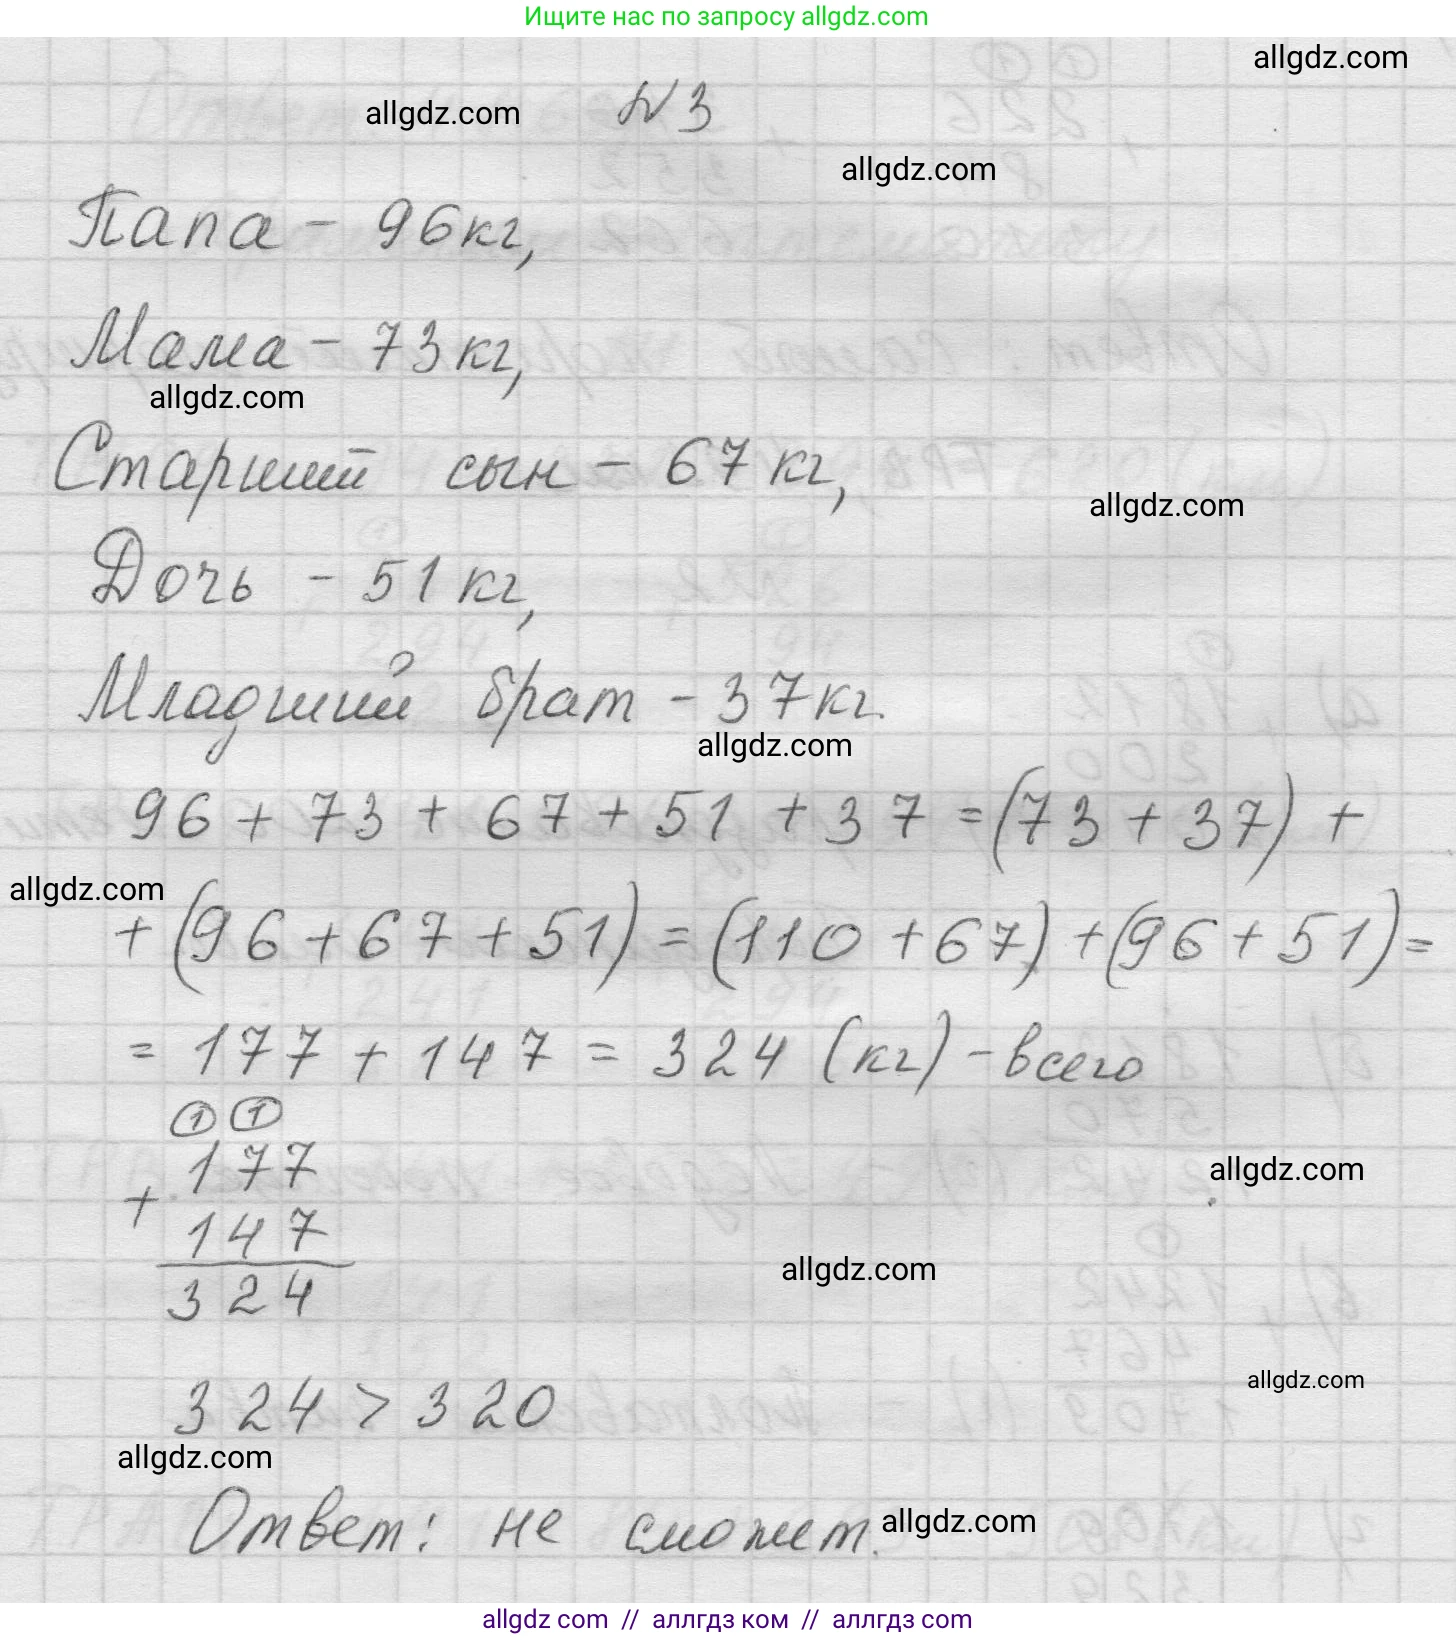 Ищите нас по запросу allgdz.com
allgdz.com
allgdz.com
N 3
allgdz.com
Папа - 96 кг,
Мама - 73 кг,
allgdz.com
Старший сын - 67 кг,
allgdz.com
Дочь - 51 кг,
Младший брат - 37 кг.
allgdz.com
96 + 73 + 67 + 51 + 37 = (73 + 37) +
allgdz.com
+ (96 + 67 + 51) = (110 + 67) + (96 + 51) =
= 177 + 147 = 324 (кг) - всего
1 1
177
allgdz.com
+
147
allgdz.com
324
allgdz.com
324 > 320
allgdz.com
Ответ: не сможет.
allgdz.com
allgdz.com // аллгдз ком // аллгдз com